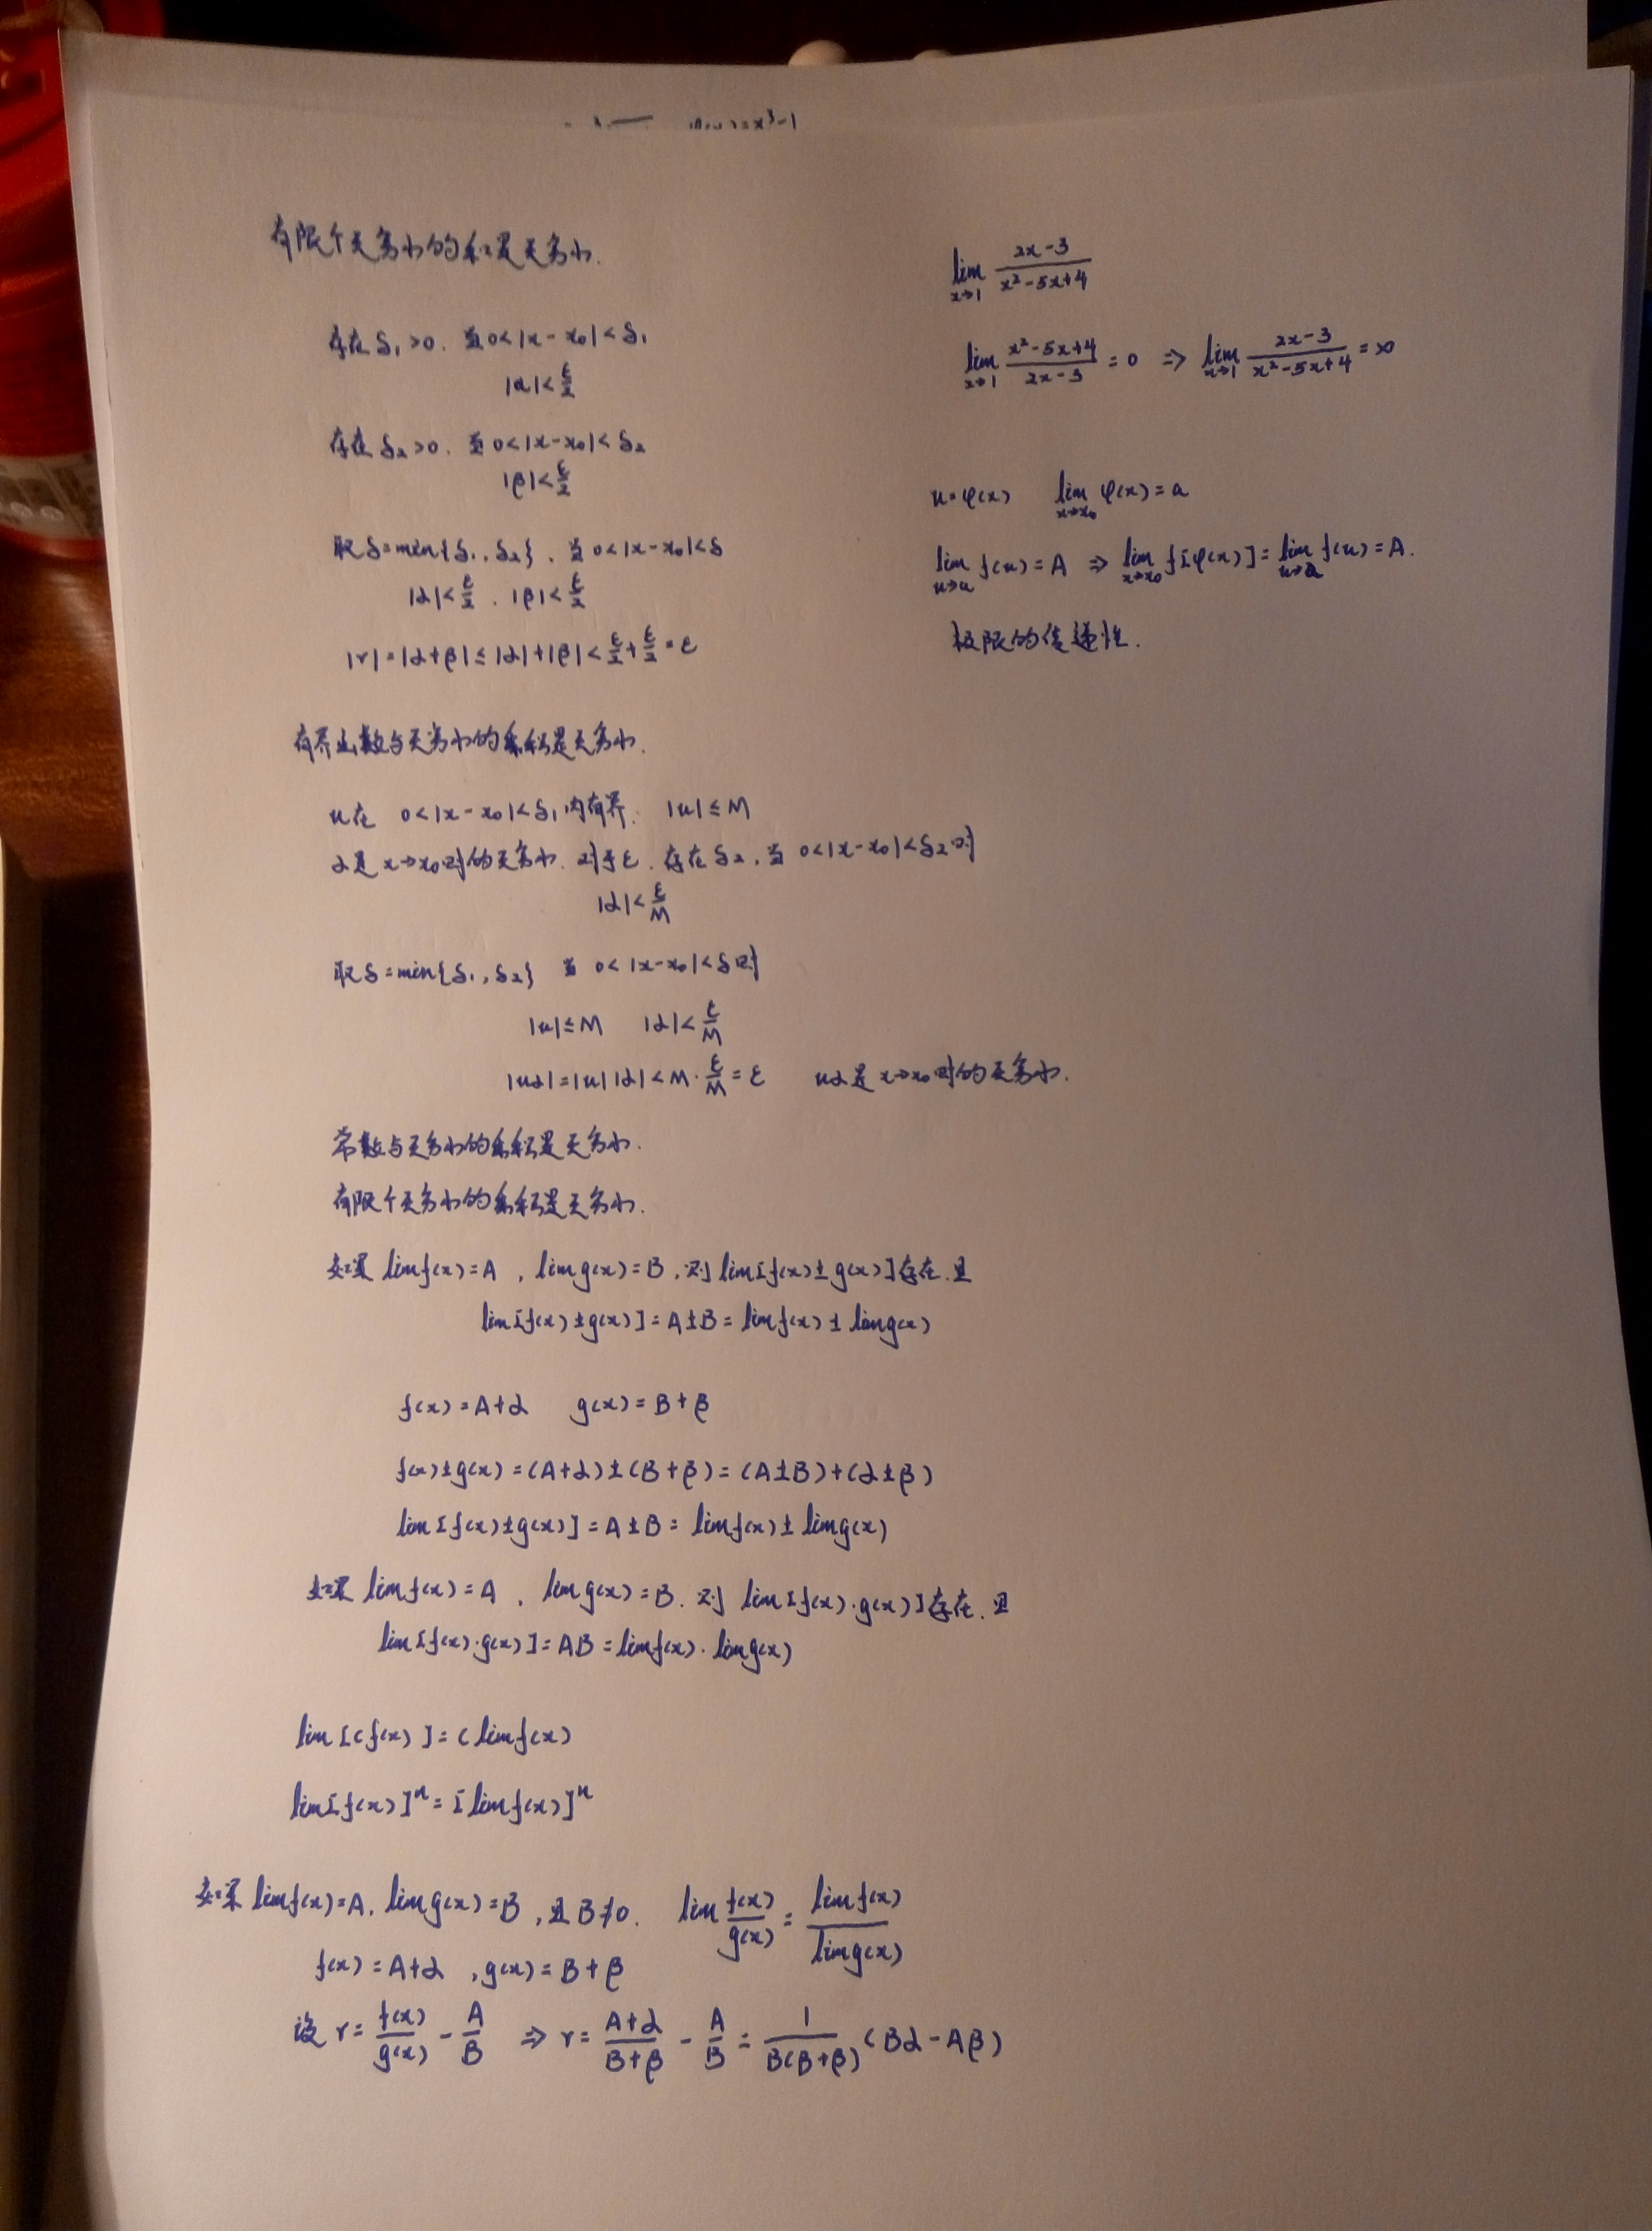 有限个无穷小的和是无穷小.
存在 δ₁>0. 当0<|x-x₀|<δ₁
|α|<ε/2
存在 δ₂>0. 当 0<|x-x₀|<δ₂
|β|<ε/2
取δ=min{δ₁,δ₂}, 当 0<|x-x₀|<δ
|α|<ε/2, |β|<ε/2
|r|=|α+β|≤|α|+|β|<ε/2+ε/2=ε
有界函数与无穷小的乘积是无穷小.
u在 0<|x-x₀|<δ₁内有界. |u|≤M
α是 x→x₀时的无穷小. 对于ε. 存在δ₂, 当 0<|x-x₀|<δ₂时
|α|<ε/M
取δ=min{δ₁,δ₂} 当 0<|x-x₀|<δ时
|u|≤M |α|<ε/M
|uα|=|u||α|<M·ε/M=ε uα是 x→x₀时的无穷小.
常数与无穷小的乘积是无穷小.
有限个无穷小的乘积是无穷小.
如果 limf(x)=A , limg(x)=B, 则 lim[f(x)±g(x)]存在. 且
lim[f(x)±g(x)]=A±B=limf(x)±limg(x)
f(x)=A+α g(x)=B+β
f(x)±g(x)=(A+α)±(B+β)=(A±B)+(α±β)
lim[f(x)±g(x)]=A±B=limf(x)±limg(x)
如果 limf(x)=A , limg(x)=B. 则 lim[f(x)·g(x)]存在. 且
lim[f(x)·g(x)]=AB=limf(x)·limg(x)
lim[cf(x)]=climf(x)
lim[f(x)]ⁿ=[limf(x)]ⁿ
如果 limf(x)=A, limg(x)=B, 且 B≠0. lim f(x)/g(x) = limf(x)/limg(x)
f(x)=A+α , g(x)=B+β
设 r= f(x)/g(x) - A/B ⇒ r= (A+α)/(B+β) - A/B = 1/(B(B+β)) (Bα-Aβ)
lim x→1 (2x-3)/(x²-5x+4)
lim x→1 (x²-5x+4)/(2x-3) =0 ⇒ lim x→1 (2x-3)/(x²-5x+4) =∞
u=φ(x) lim x→x₀ φ(x)=a
lim u→a f(u)=A ⇒ lim x→x₀ f[φ(x)]=lim u→a f(u)=A.
极限的传递性.